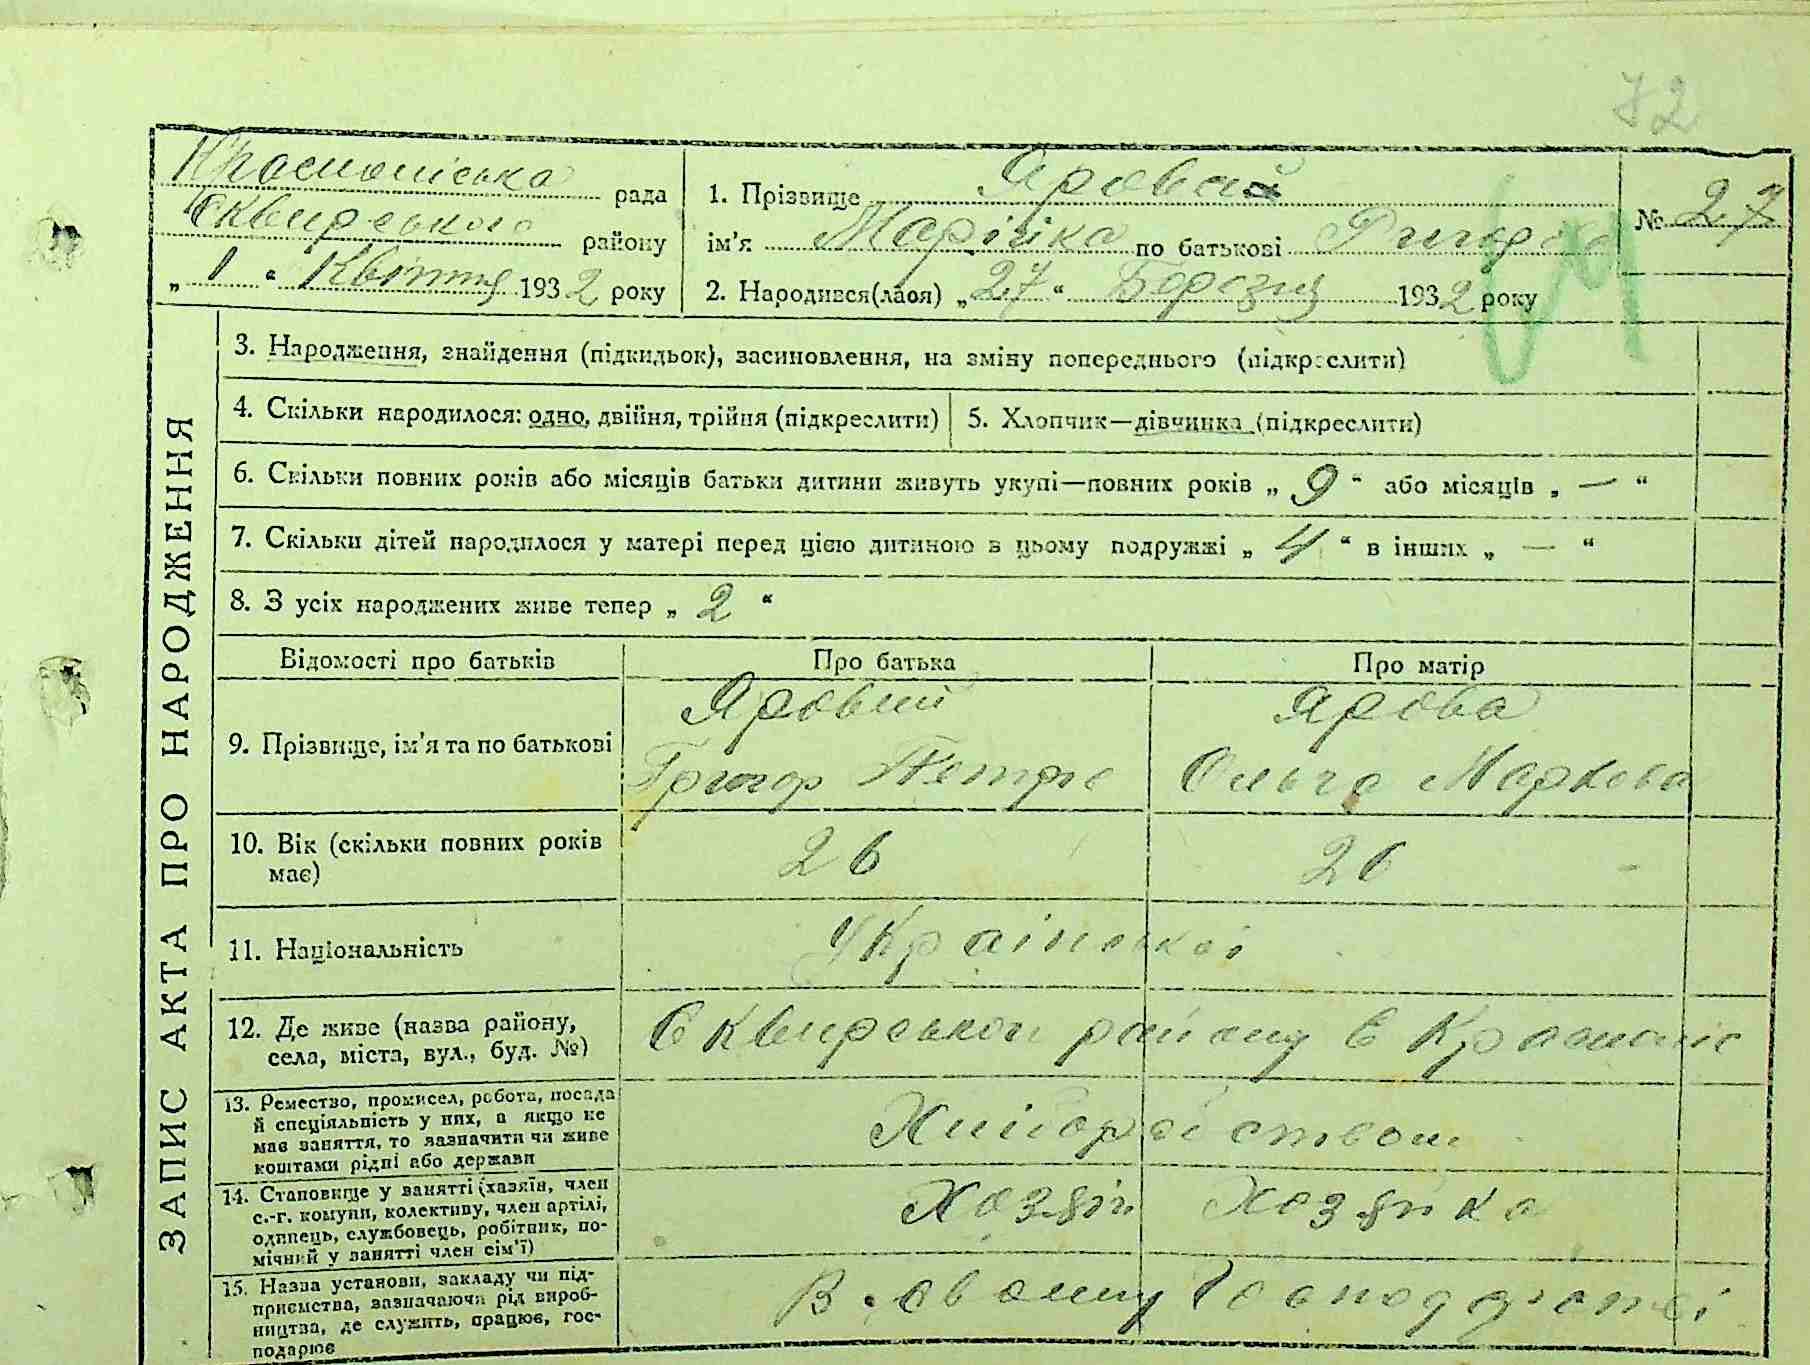 72
Красноліська рада
Сквирського району
„ 1 “ Квітня 1932 року
1. Прізвище Ярова
ім'я Марійка по батькові Григорова
2. Народився(лася) „27“ Березня 1932 року
№ 27
ЗАПИС АКТА ПРО НАРОДЖЕННЯ
3. Народження, знайдення (підкидьок), засиновлення, на зміну попереднього (підкреслити)
4. Скільки народилося: одно, двійня, трійня (підкреслити)
5. Хлопчик—дівчинка (підкреслити)
6. Скільки повних років або місяців батьки дитини живуть укупі—повних років „ 9 “ або місяців „ — “
7. Скільки дітей народилося у матері перед цією дитиною в цьому подружжі „ 4 “ в інших „ — “
8. З усіх народжених живе тепер „ 2 “
Відомості про батьків Про батька Про матір
9. Прізвище, ім'я та по батькові
Яровий
Григор Петро
Ярова
Ольга Маркова
10. Вік (скільки повних років
має)
26 26
11. Національність
Української
12. Де живе (назва району,
села, міста, вул., буд. №)
Сквирського району С Красноліс
13. Ремество, промисел, робота, посада
й спеціяльність у них, а якщо не
має заняття, то зазначити чи живе
коштами рідні або держави
14. Становище у занятті (хазяїн, член
с.-г. комуни, колективу, член артілі,
одинець, службовець, робітник, по-
мічний у занятті член сім'ї)
Хозяін Хозяйка
15. Назва установи, закладу чи під-
приємства, зазначаючи рід вироб-
ництва, де служить, працює, гос-
подарює
В своему Господарстві